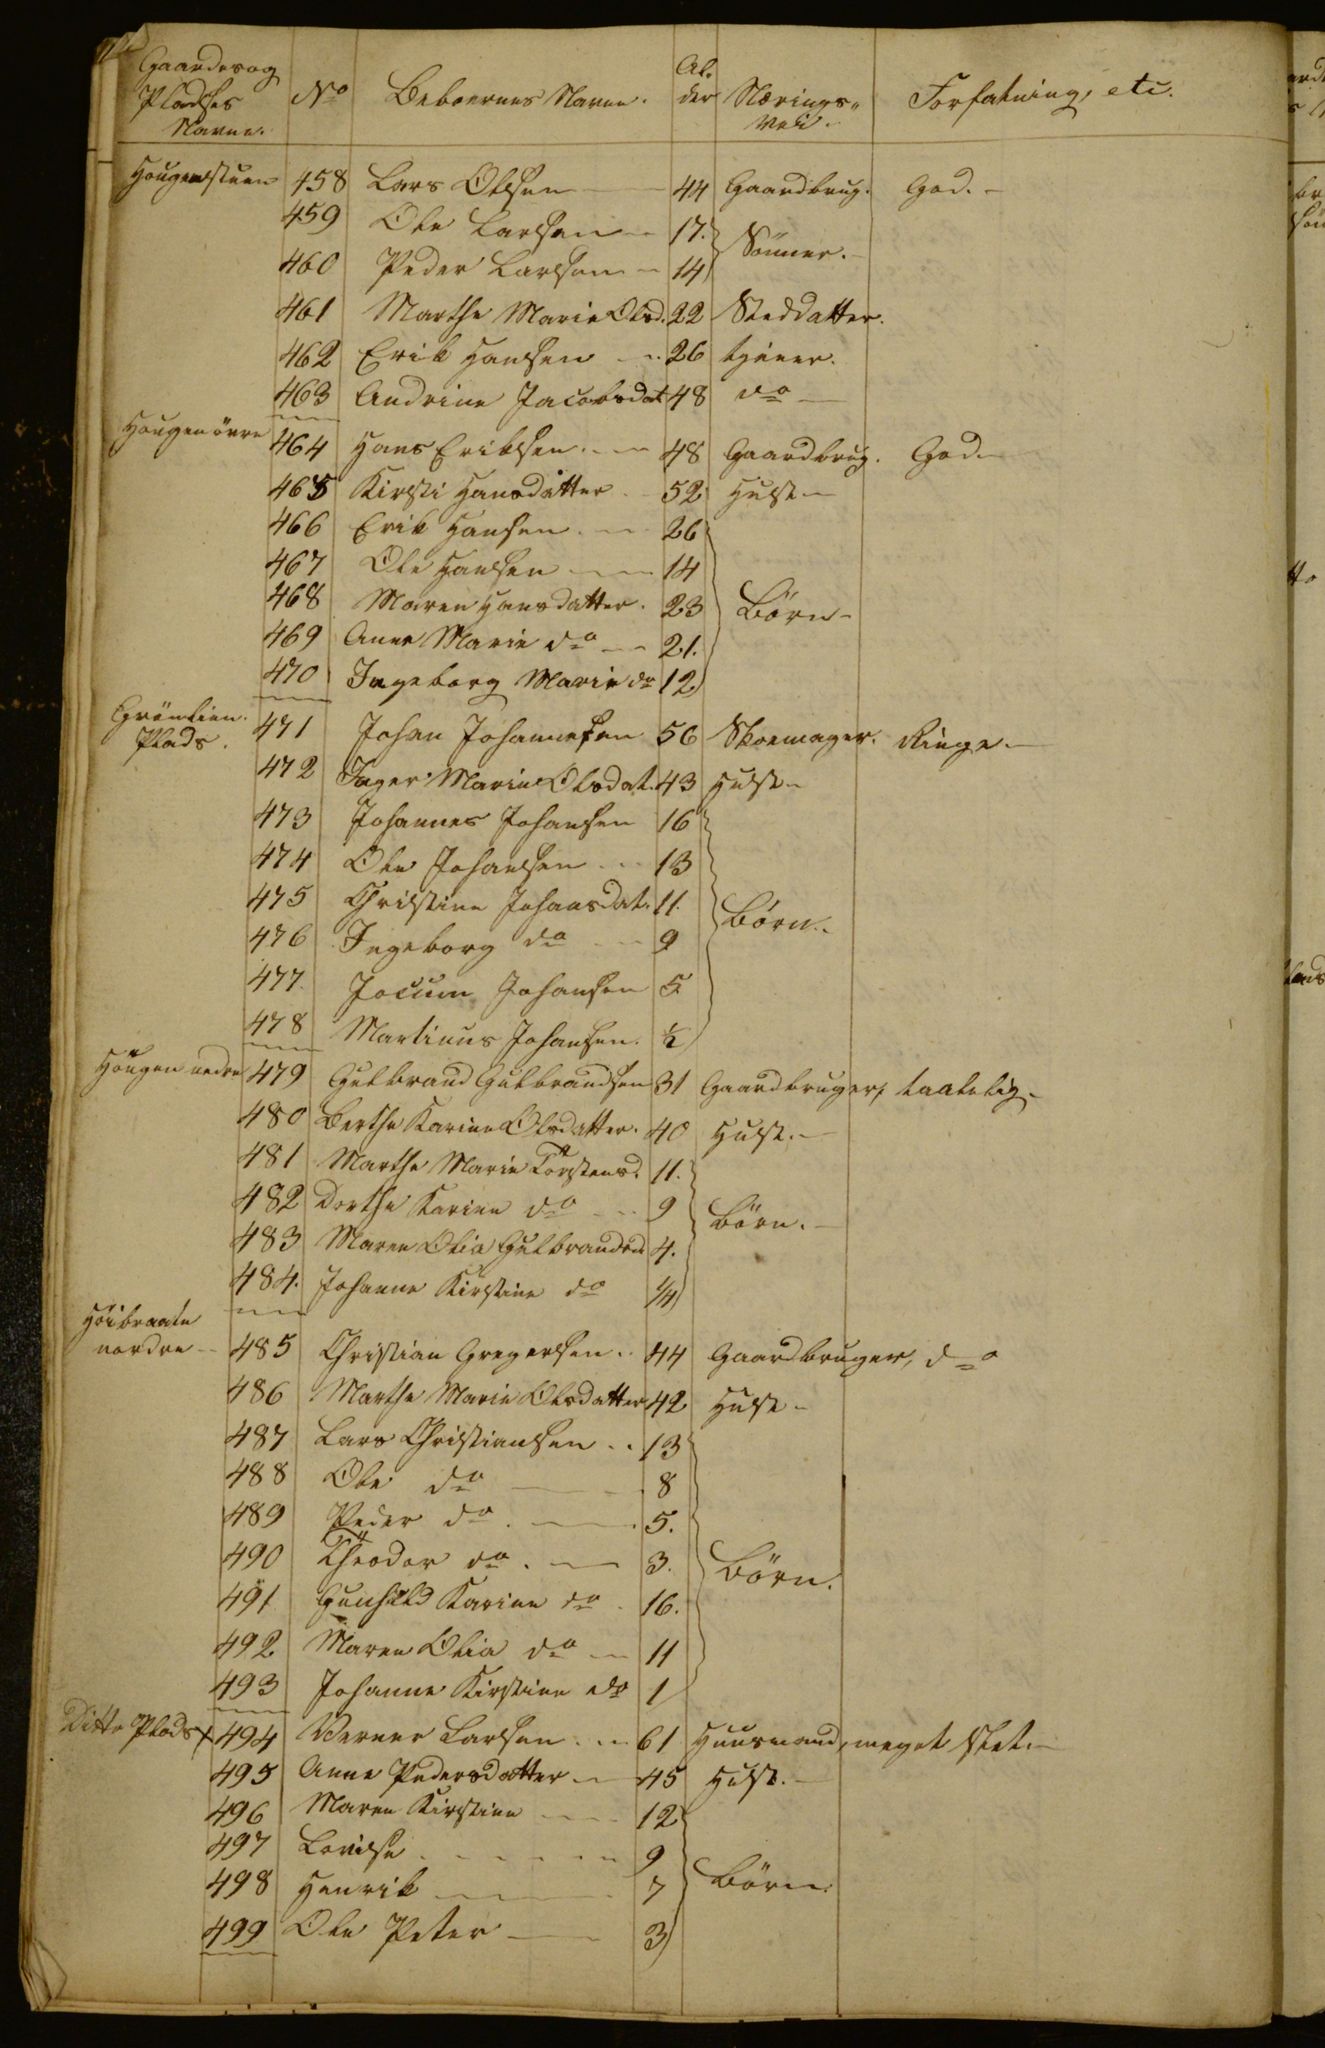 Gaardes og Pladses Navne. No Beboernes Navne. Al- der Nærings- vei. Forfatning, etc.
Hougenstuen 458 Lars Olsen 44 Gaardbrug. God.
459 Ole Larsen 17.
460 Peder Larsen 14 Sönner.
461 Marthe Marie Olsd. 22 Steddatter.
462 Erik Hansen 26 tjener.
463 Andrine Jacobsdat 48 do
Hougen övre 464 Hans Eriksen 48 Gaardbrug. God.
465 Kirsti Hansdatter 52 Hust
466 Erik Hansen 26
467 Ole Hansen 14
468 Maren Hansdatter. 23 Börn
469 Anne Marie do 21.
470 Ingeborg Marie do 12
Grönlien Plads. 471 Johan Johannesen 56 Skoemager. Ringe.
472 Inger Marie Olsdat. 43 Hust
473 Johannes Johansen 16
474 Ole Johansen 13
475 Christine Johansdat. 11.
476 Ingeborg do 9 Börn.
477. Jocum Johansen 5
478 Martinus Johansen. ½
Hougen nedre 479 Gulbrand Gulbrandsen 31 Gaardbruger, taalelig
480 Berthe Karine Olsdatter. 40 Hust.
481 Marthe Marie Torstensd. 11.
482 Dorthe Karine do 9 Börn.
483 Maren Olia Gulbrandsd 4.
484. Johanne Kirstine do ¼
Höibraate nordre 485 Christian Gregersen 44 Gaardbruger, do
486 Marthe Marie Olsdatter 42 Hust
487 Lars Christiansen 13
488 Ole do 8
489 Peder do 5.
490 Theodor do 3. Börn.
491 Gunhild Karine do 16.
492 Maren Olia do 11
493 Johanne Kirstine do 1
Ditto Plads 494 Verner Larsen 61 Huusmand, meget slet
495 Anne Pedersdatter 45 Hust.
496 Maren Kirstine 12
497 Lovise 9
498 Henrik 7 Börn
499 Ole Peter 3